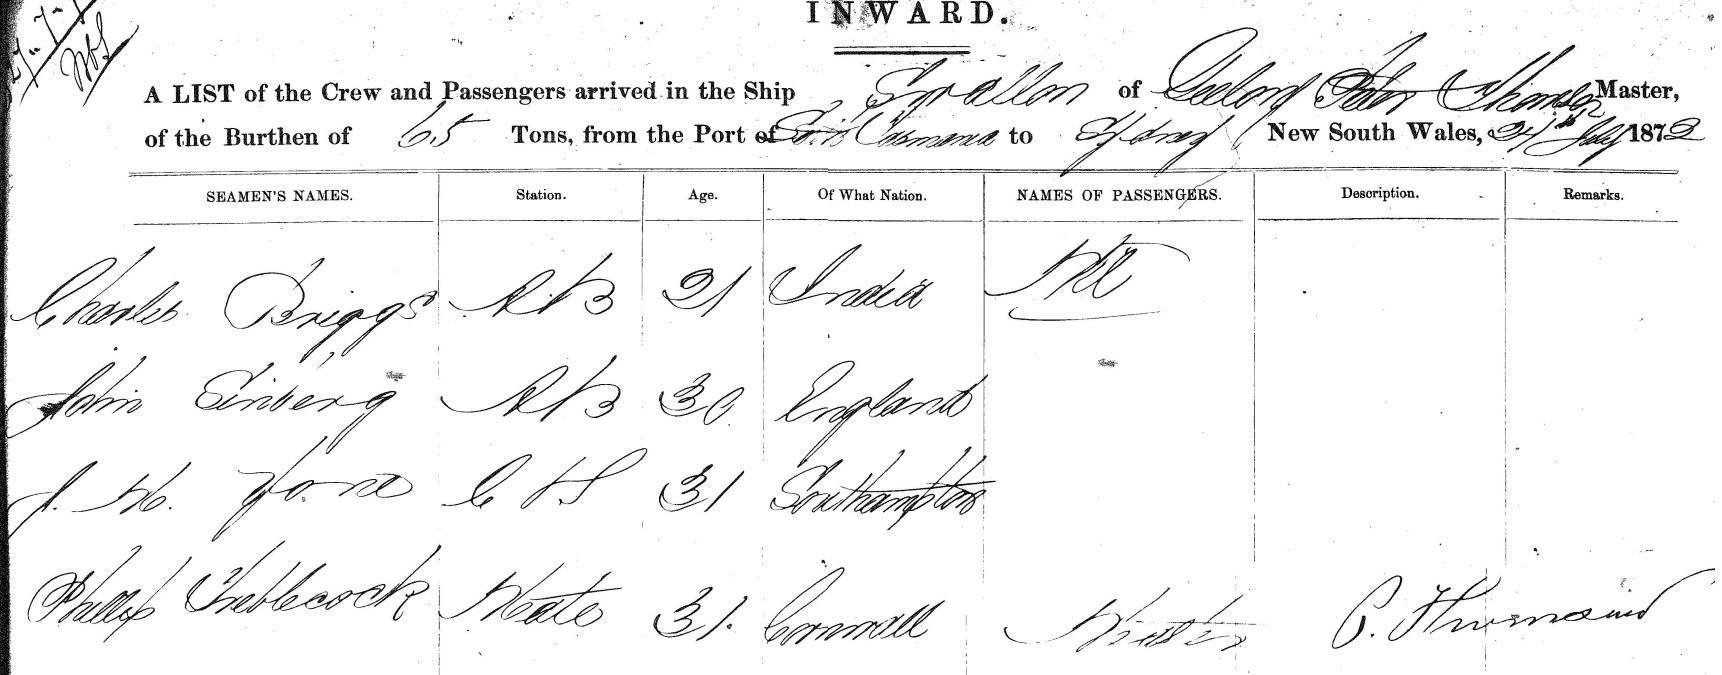 INWARD.
A LIST of the Crew and Passengers arrived in the Ship Swallow of Geelong Peter Master,
of the Burthen of 65 Tons, from the Port of Tasmania to Sydney New South Wales, 24th July 1872
SEAMEN'S NAMES. Station. Age. Of What Nation. NAMES OF PASSENGERS. Description. Remarks.
Charles Briggs A B 21 India Nil
John Einberg A B 30 England
J. H. C & S 31 Southampton
Phillip Treblecock Mate 31. Cornwall Master